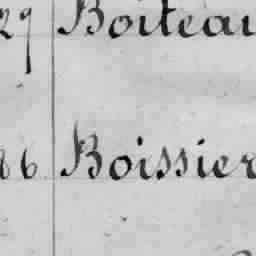 29 Boiteau
86 Boissier